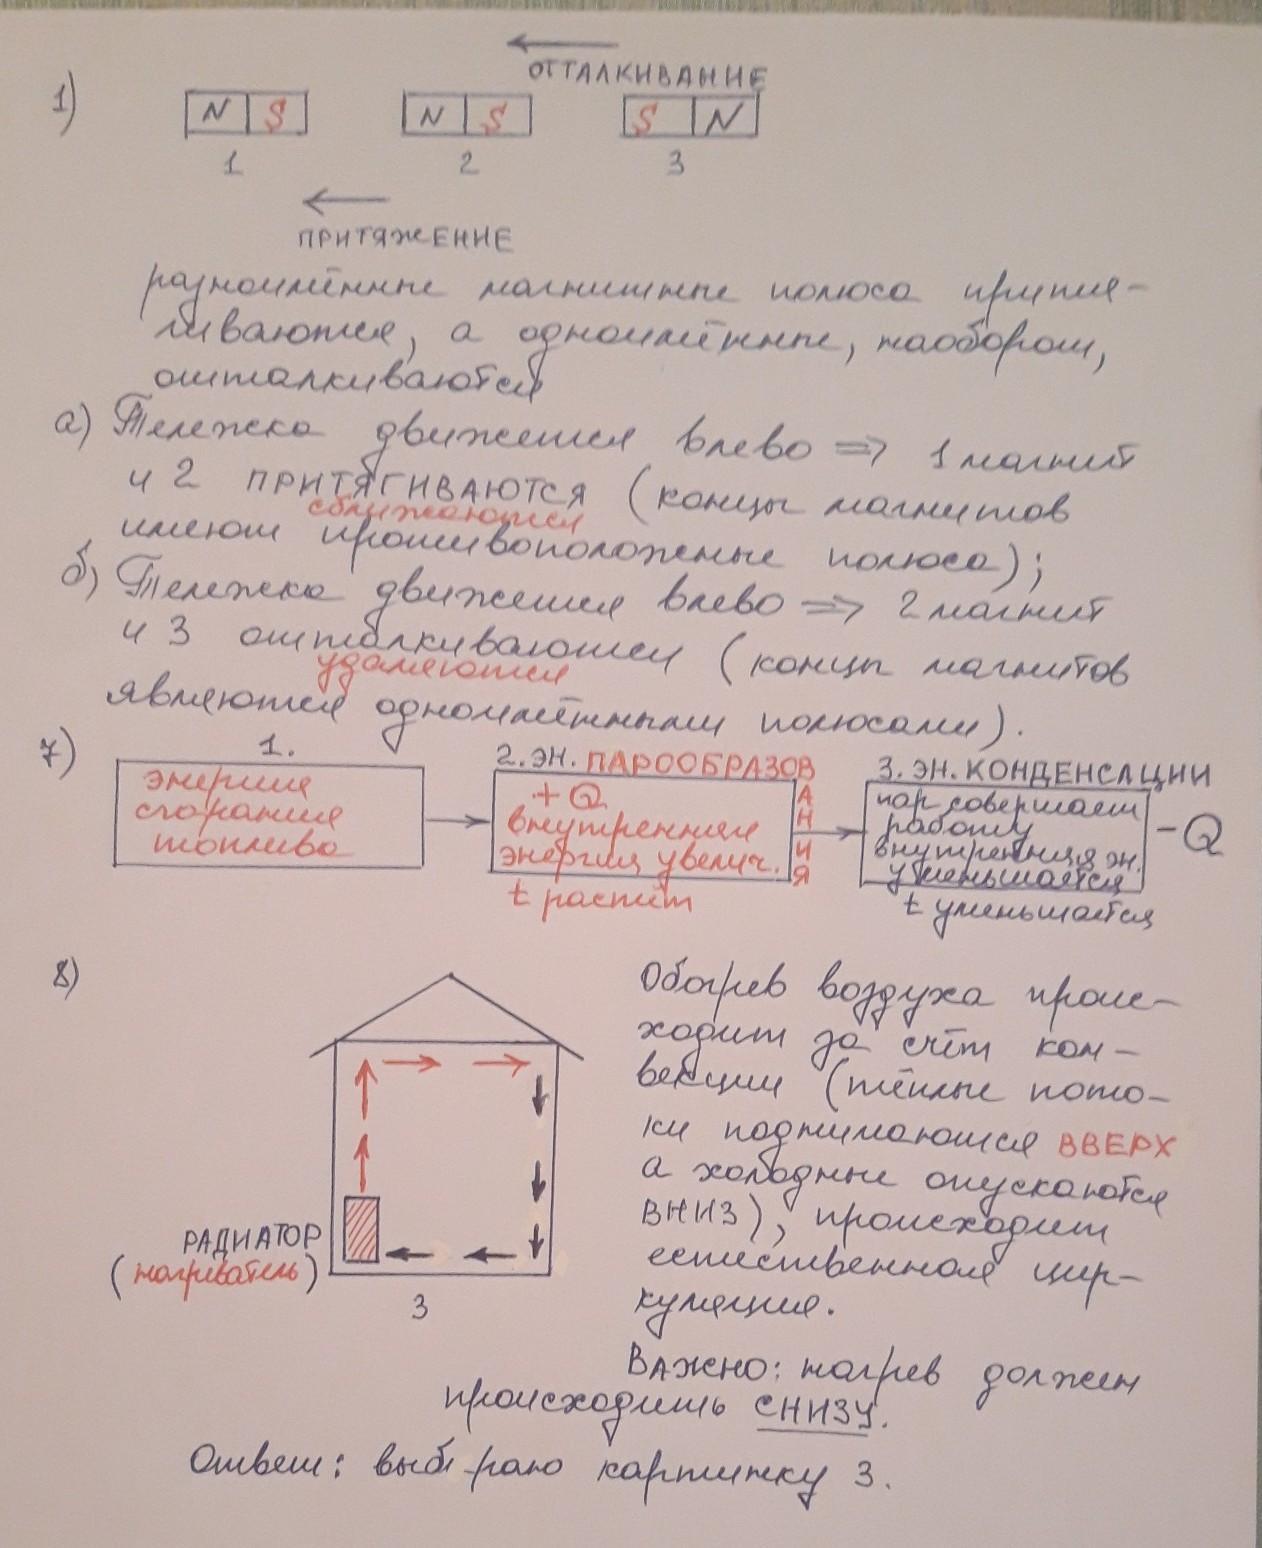 ОТТАЛКИВАНИЕ
1)
N S N S S N
1 2 3
ПРИТЯЖЕНИЕ
разноимённые магнитные полюса притя-
гиваются, а одноимённые, наоборот,
отталкиваются
а) Тележка движется влево => 1 магнит
и 2 ПРИТЯГИВАЮТСЯ (концы магнитов
сближаются
имеют противоположные полюса);
б) Тележка движется влево => 2 магнит
и 3 отталкиваются (концы магнитов
удаляются
являются одноимёнными полюсами).
7)
1.
энергия
сгорания
топлива
2. ЭН. ПАРООБРАЗОВАНИЯ
+ Q
внутренняя
энергия увелич.
t растёт
3. ЭН. КОНДЕНСАЦИИ
пар совершает
работу
внутренняя эн.
уменьшается
- Q
t уменьшается
8)
Обогрев воздуха проис-
ходит за счёт кон-
векции (тёплые пото-
ки поднимаются ВВЕРХ
а холодные опускаются
ВНИЗ), происходит
естественная цир-
куляция.
РАДИАТОР
(нагреватель)
3
ВАЖНО: нагрев должен
происходить СНИЗУ.
Ответ: выбираю картинку 3.